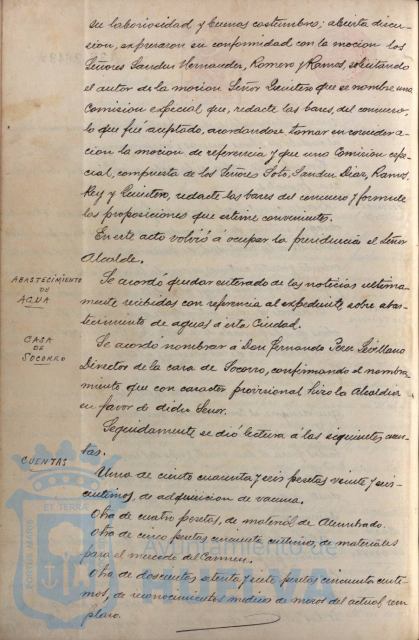 su laboriosidad y buenas costumbres; abierta discu-
sion, expresaron su conformidad con la mocion los
Señores Sanchez Hernandez, Romero y Ramos, solicitando
el autor de la mocion Señor Quintero que se nombre una
Comision especial que, redacte las bases, del concurso,
lo que fué aceptado, acordandose tomar en considera
cion la mocion de referencia y que una Comision espe-
cial, compuesta de los Señores Soto, Sanchez Diaz, Ramos,
Rey y Quintero, redacte las bases del concurso y formule
las proposiciones que estime convenientes.
En este acto volvió á ocupar la presidencia el Señor
Alcalde.
ABASTECIMIENTO
DE
AGUA
Se acordó quedar enterado de las noticias ultima-
mente recibidas con referencia al expediente sobre abas-
tecimiento de aguas a esta Ciudad.
CASA
DE
SOCORRO
Se acordó nombrar á Don Fernando Perez Sevillano
Director de la casa de Socorro, confirmando el nombra
miento que con caracter provisional hizo la Alcaldia
en favor de dicho Señor.
Seguidamente se dió lectura á las siguientes cuen-
tas.
CUENTAS
Una de ciento cuarenta y seis pesetas veinte y seis
centimos, de adquisicion de vacuna.
Otra de cuatro pesetas, de material de Alumbrado.
Otra de cinco pesetas cincuenta centimos, de materiales
para el mercado del Carmen.
Otra de doscientas setenta y siete pesetas cincuenta centi-
mos, de reconocimientos medicos de mozos del actual reem
plazo.
ET TERRA
PORTUS MARIS
Ayuntamiento de